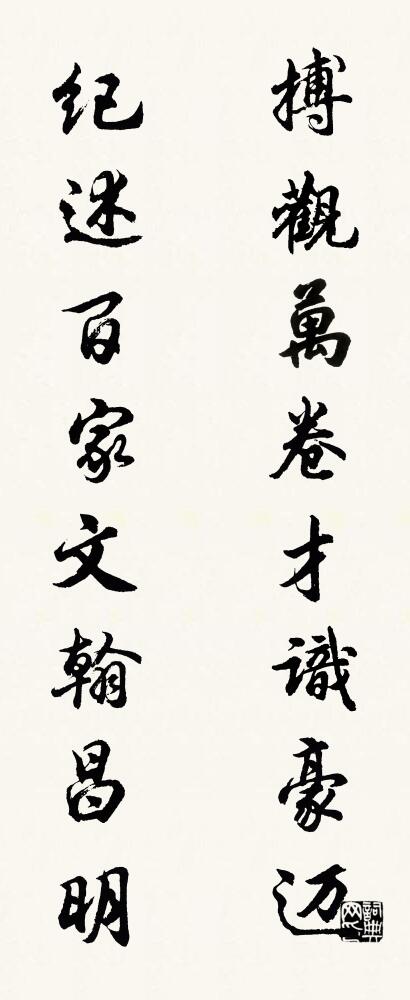 搏觀萬卷才識豪迈
纪述百家文翰昌明